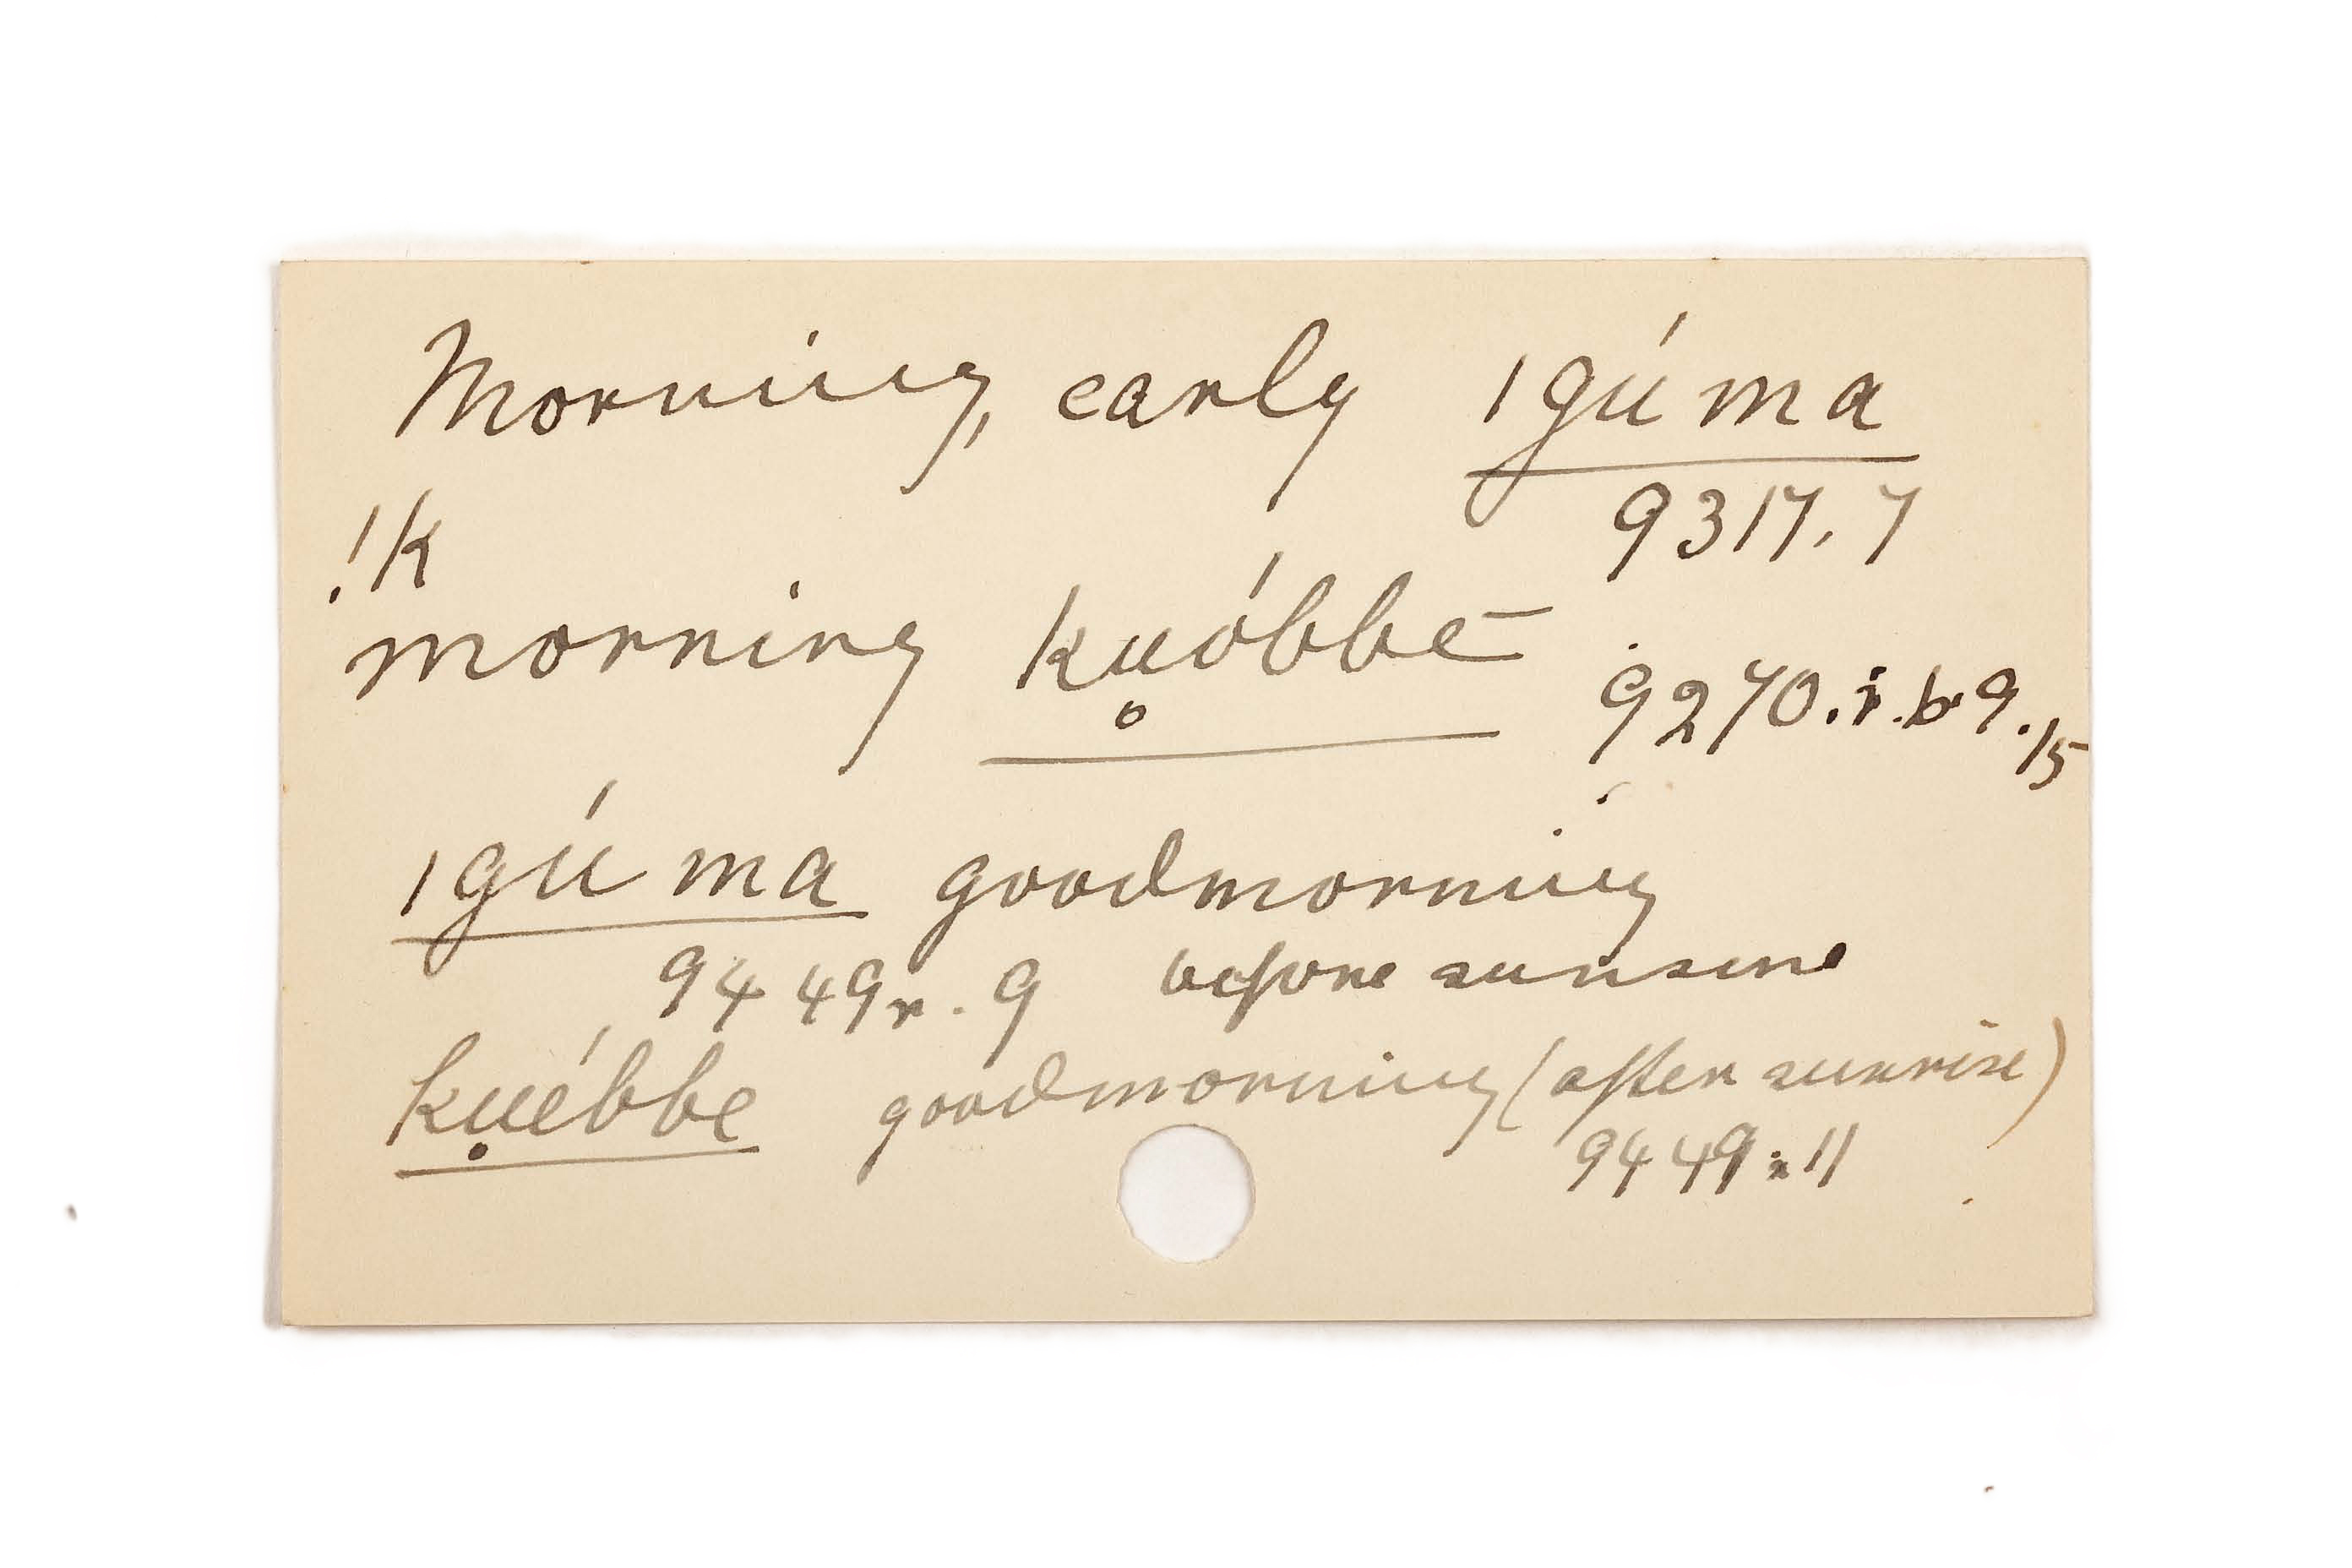 Morning, early ıgúma
9317.7
!k
morning ku̥óbbē
9270.r.b9.15
ıgúma goodmorning
9449r.9 before sunrise
kụébbe goodmorning (after sunrise)
9449r11